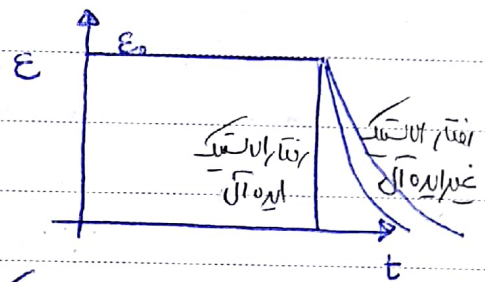 ε₀
ε
رفتار الاستیک
ایده آل
رفتار الاستیک
غیر ایده آل
t